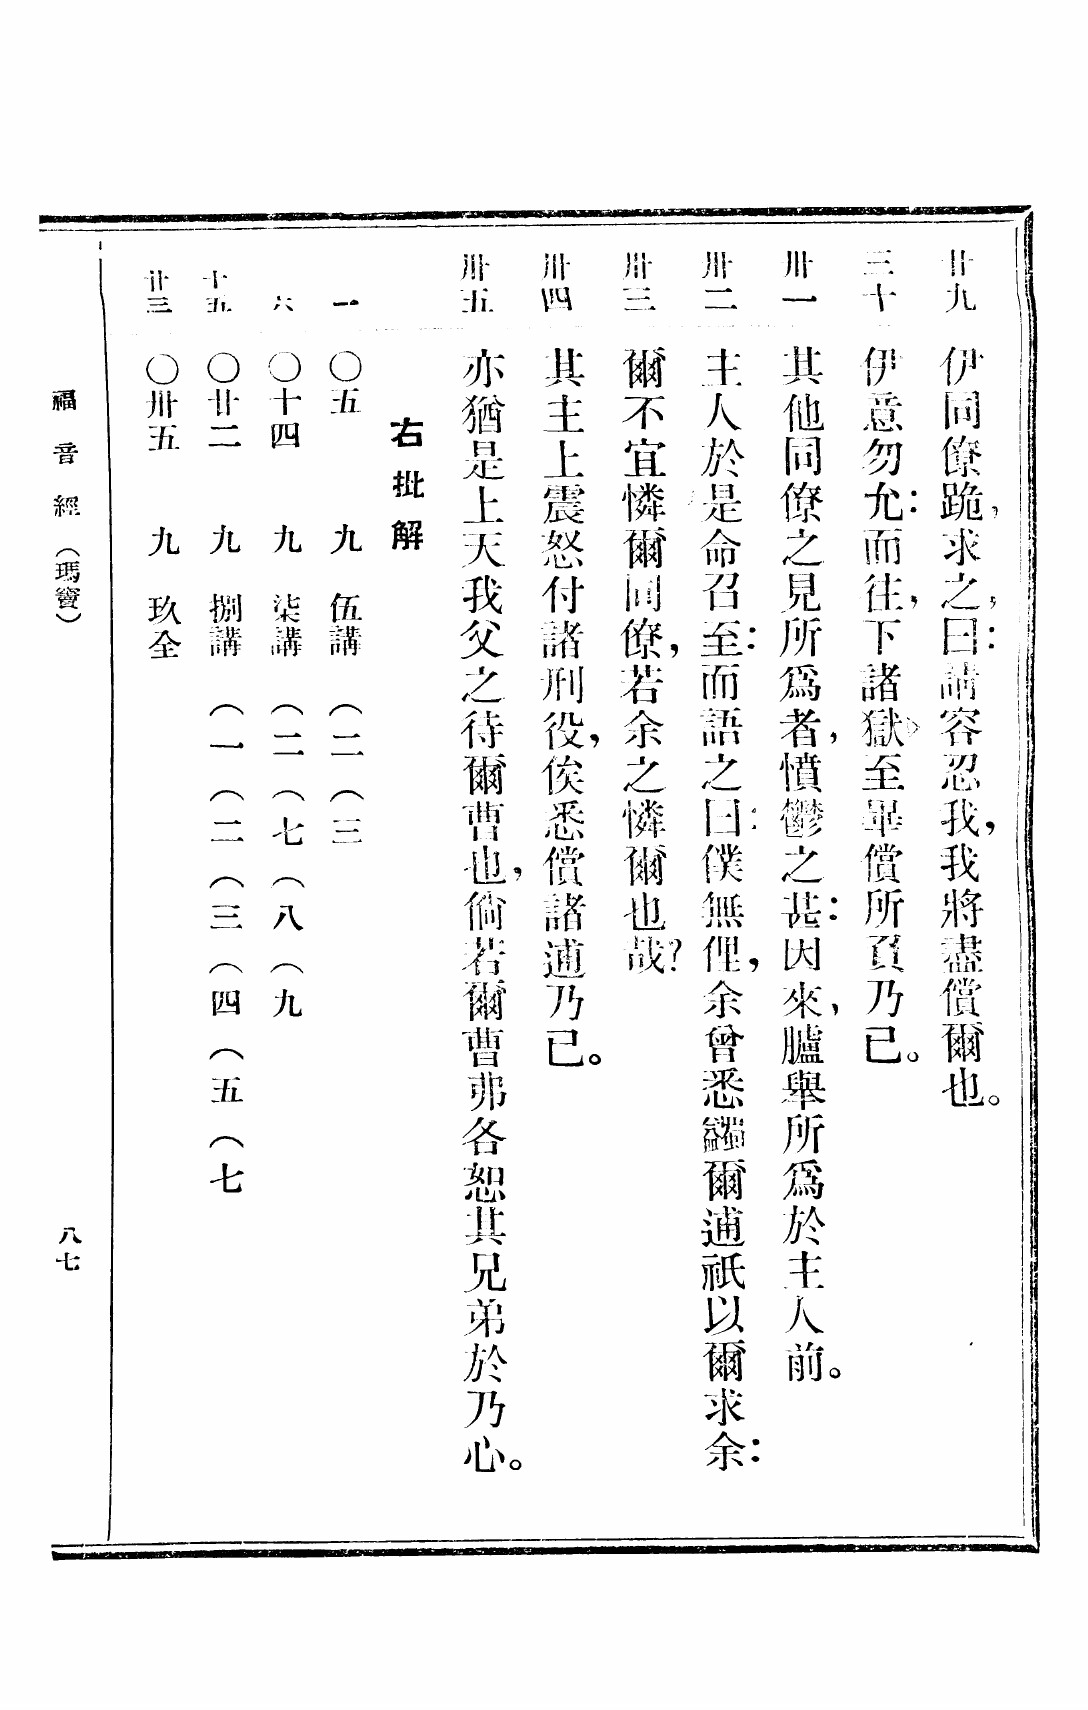 廿九 伊同僚跪,求之,曰:請容忍我,我將盡償爾也。
三十 伊意勿允:而往,下諸獄,至畢償所負乃已。
卅一 其他同僚之見所爲者,憤鬱之甚:因來,臚舉所爲於主人前。
卅二 主人於是命召至:而語之曰:僕無俚,余曾悉蠲爾逋祇以爾求余:
卅三 爾不宜憐爾同僚,若余之憐爾也哉?
卅四 其主上震怒付諸刑役,俟悉償諸逋乃已。
卅五 亦猶是上天我父之待爾曹也,倘若爾曹弗各恕其兄弟於乃心。
右批解
一 〇五 九 伍講 (二(三
六 〇十四 九 柒講 (二(七(八(九
十五 〇廿二 九 捌講 (一(二(三(四(五(七
廿三 〇卅五 九 玖全
福音經(瑪竇)
八七